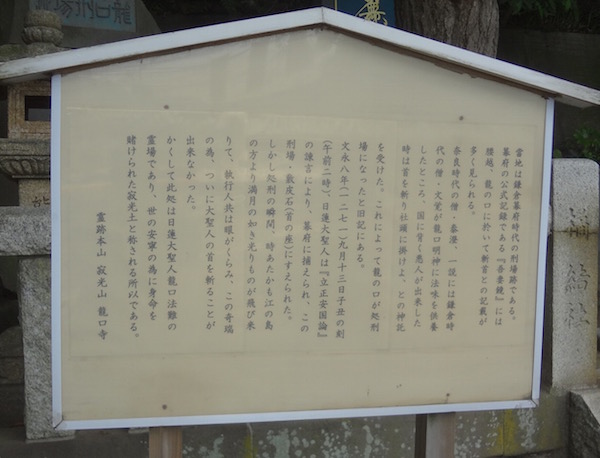 龍口刑場跡
當地は鎌倉幕府時代の刑場跡である。
幕府の公式記録である『吾妻鏡』には
腰越、龍の口に於いて斬首との記載が
多く見られる。
奈良時代の僧・泰澄、一説には鎌倉時
代の僧・文覚が龍口明神に法味を供養
したところ、国に背く悪人が出来した
時は首を斬り社頭に掛けよ、との神託
を受けた。これによって龍の口が処刑
場になったと旧記にある。
文永八年(一二七一)九月十三日子丑の刻
(午前二時)、日蓮大聖人は『立正安国論』
の諌言により、幕府に捕えられ、この
刑場・敷皮石(首の座)にすえられた。
しかし処刑の瞬間、時あたかも江の島
の方より満月の如き光りものが飛び来
りて、執行人共は眼がくらみ、この奇瑞
の為、ついに大聖人の首を斬ることが
出来なかった。
かくして此処は日蓮大聖人龍口法難の
霊場であり、世の安寧の為に身命を
賭けられた寂光土と称される所以である。
霊跡本山 寂光山 龍口寺